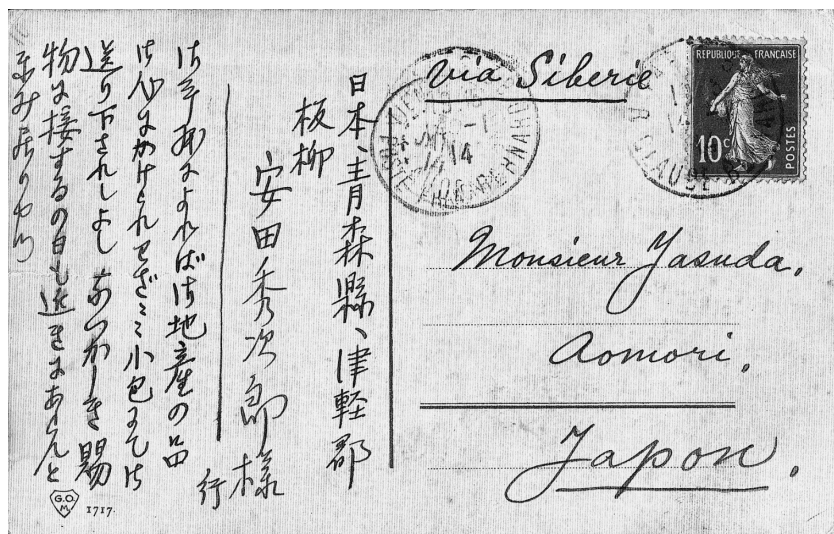 via Siberie
REPUBLIQUE FRANÇAISE
10c
POSTES
Monsieur Yasuda.
Aomori.
Japon.
日本、青森縣、津軽郡
板柳
安田秀次郎様
行
御手紙によれば御地産の品
御心にかけられわざわざ小包にて御
送り下されしよしあつかしき賜
物に接するの日も近きにあらんと
楽み居り申候
G.O.
M.
1717.